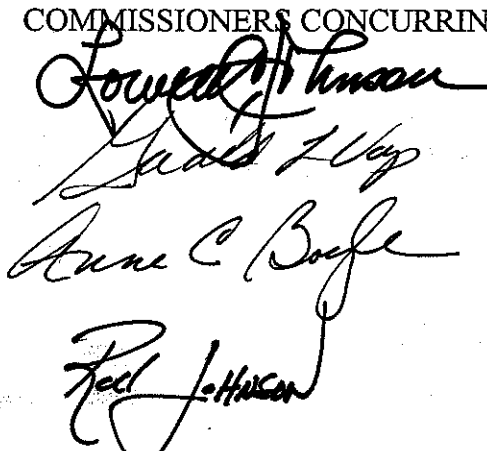 COMMISSIONERS CONCURRIN
Lowell C. Johnson
Anne C Boyle
Rod JoHNSON